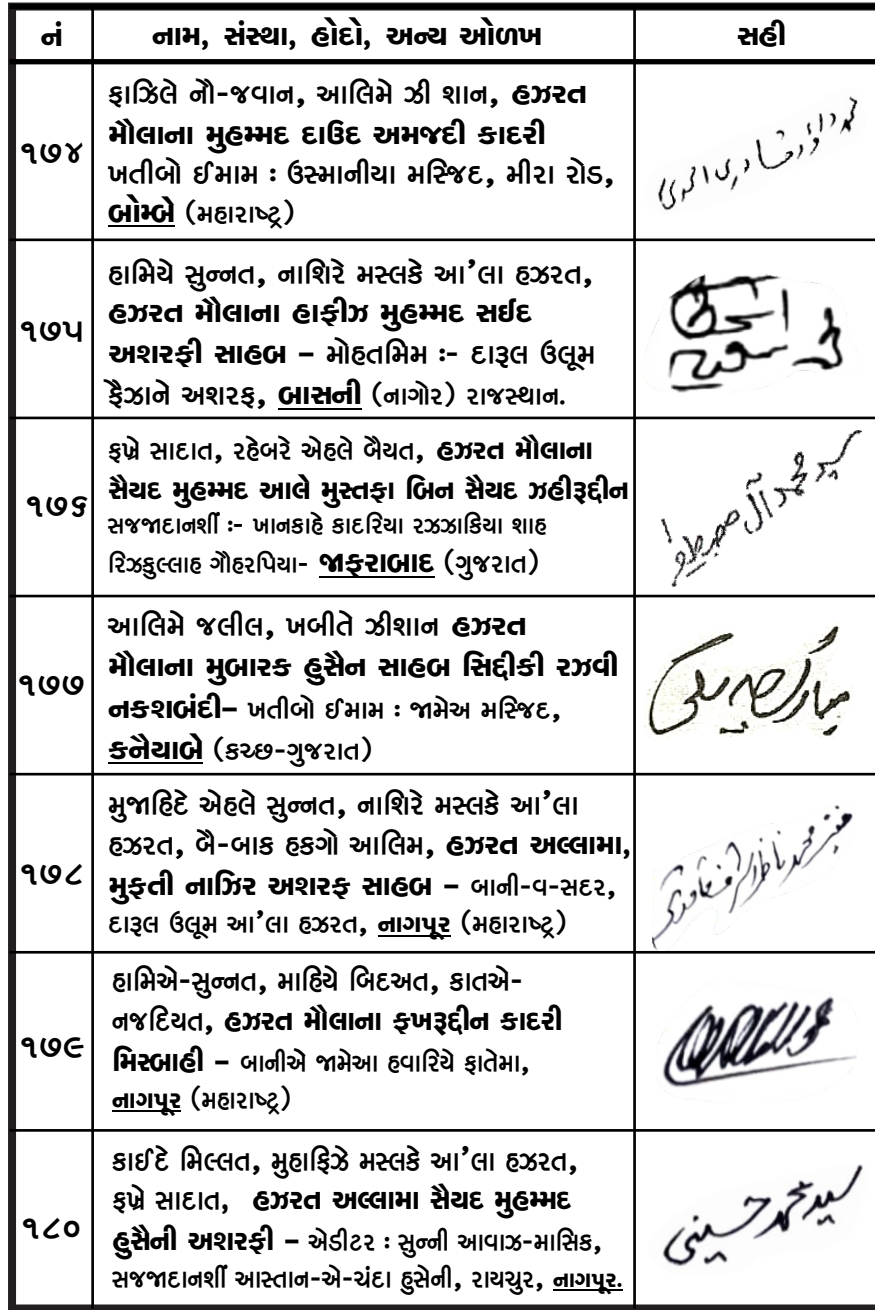 નં નામ, સંસ્થા, હોદો, અન્ય ઓળખ સહી
૧૭૪
ફાઝિલે નૌ-જવાન, આલિમે ઝી શાન, હઝરત
મૌલાના મુહમ્મદ દાઉદ અમજદી કાદરી
ખતીબો ઈમામ : ઉસ્માનીયા મસ્જિદ, મીરા રોડ,
બોમ્બે (મહારાષ્ટ્ર)
૧૭૫
હામિયે સુન્નત, નાશિરે મસ્લકે આ’લા હઝરત,
હઝરત મૌલાના હાફીઝ મુહમ્મદ સઈદ
અશરફી સાહબ – મોહતમિમ :- દારૂલ ઉલૂમ
ફૈઝાને અશરફ, બાસની (નાગોર) રાજસ્થાન.
૧૭૬
ફખ્રે સાદાત, રહેબરે એહલે બૈયત, હઝરત મૌલાના
સૈયદ મુહમ્મદ આલે મુસ્તફા બિન સૈયદ ઝહીરૂદ્દીન
સજજાદાનશીં :- ખાનકાહે કાદરિયા રઝઝાકિયા શાહ
રિઝકુલ્લાહ ગૌહરપિયા- જાફરાબાદ (ગુજરાત)
سید محمد آل مصطفٰی
૧૭૭
આલિમે જલીલ, ખબીતે ઝીશાન હઝરત
મૌલાના મુબારક હુસૈન સાહબ સિદ્દીકી રઝવી
નકશબંદી– ખતીબો ઈમામ : જામેઅ મસ્જિદ,
કનૈયાબે (કચ્છ-ગુજરાત)
૧૭૮
મુજાહિદે એહલે સુન્નત, નાશિરે મસ્લકે આ’લા
હઝરત, બૈ-બાક હકગો આલિમ, હઝરત અલ્લામા,
મુફતી નાઝિર અશરફ સાહબ – બાની-વ-સદર,
દારૂલ ઉલૂમ આ’લા હઝરત, નાગપૂર (મહારાષ્ટ્ર)
૧૭૯
હામિએ-સુન્નત, માહિયે બિદઅત, કાતએ-
નજદિયત, હઝરત મૌલાના ફખરૂદ્દીન કાદરી
મિસ્બાહી – બાનીએ જામેઆ હવારિયે ફાતેમા,
નાગપૂર (મહારાષ્ટ્ર)
૧૮૦
કાઈદે મિલ્લત, મુહાફિઝે મસ્લકે આ’લા હઝરત,
ફખ્રે સાદાત, હઝરત અલ્લામા સૈયદ મુહમ્મદ
હુસૈની અશરફી – એડીટર : સુન્ની આવાઝ-માસિક,
સજજાદાનશીં આસ્તાન-એ-ચંદા હુસેની, રાયચુર, નાગપૂર.
سید محمد حسینی